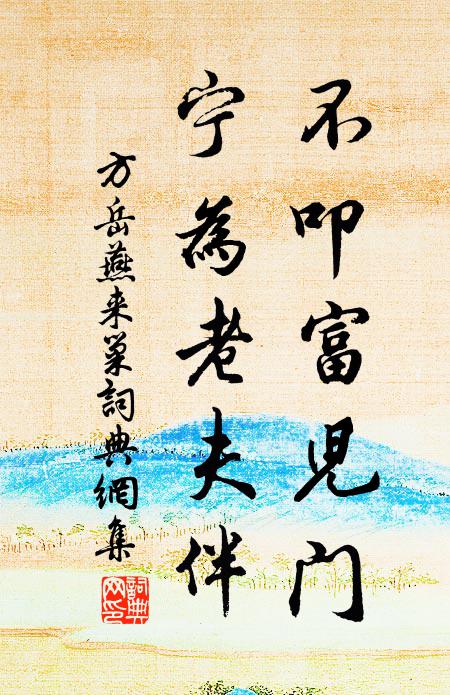 不叩富児门
宁為老夫伴
方岳燕来巢詞典網集
詞典網印